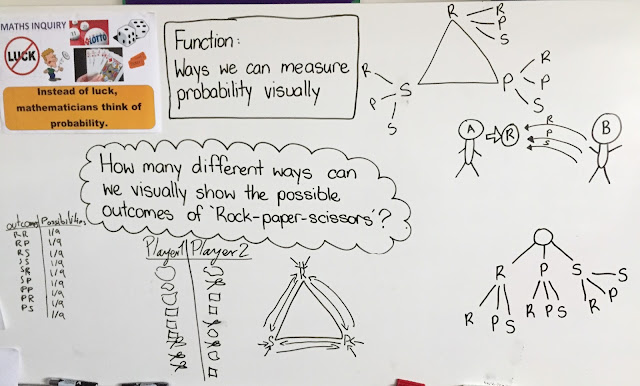 MATHS INQUIRY
LUCK
LOTTO
Instead of luck,
mathematicians think of
probability.
Function:
Ways we can measure
probability visually
R
R
P
S
R
P
S
S
P
R
P
S
A
R
R
P
S
B
How many different ways can
we visually show the possible
outcomes of 'Rock-paper-scissors'?
outcome Possibilities
RR 1/9
RP 1/9
RS 1/9
SS 1/9
SR 1/9
SP 1/9
PP 1/9
PR 1/9
PS 1/9
Player 1 Player 2
R
S
P
R P S
R P S R P S
R P S